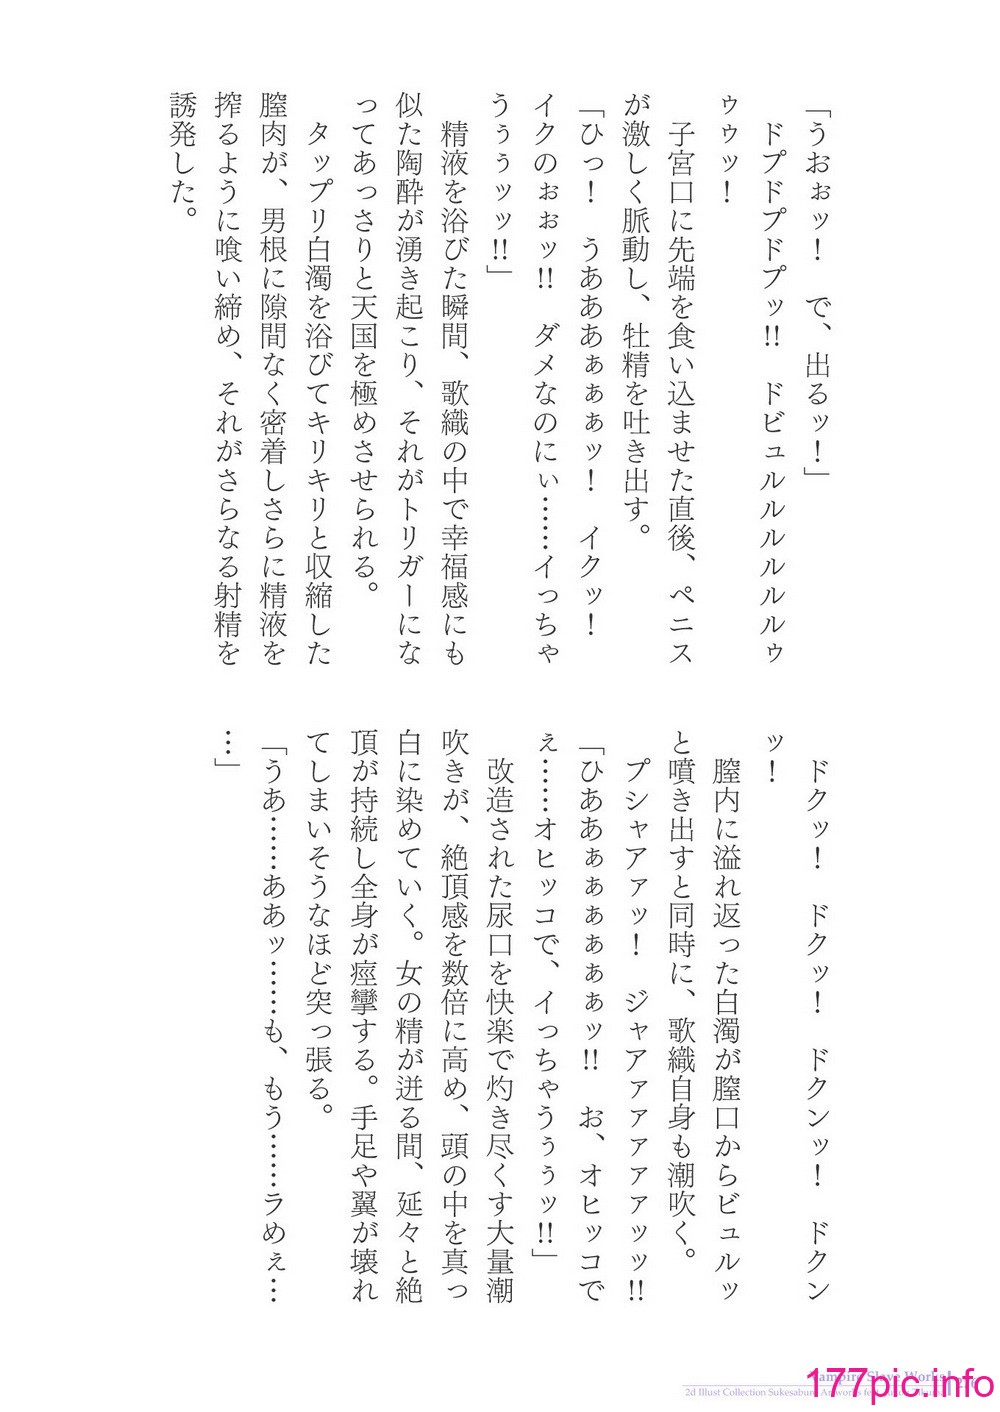 「うおぉッ！　で、出るッ！」
　ドプドプドプッ!!　ドビュルルルルルルゥ
ゥゥッ！
　子宮口に先端を食い込ませた直後、ペニス
が激しく脈動し、牡精を吐き出す。
「ひっ！　うあああぁぁぁッ！　イクッ！
イクのぉぉッ!!　ダメなのにぃ……イっちゃ
うぅぅッッ!!」
　精液を浴びた瞬間、歌織の中で幸福感にも
似た陶酔が湧き起こり、それがトリガーにな
ってあっさりと天国を極めさせられる。
　タップリ白濁を浴びてキリキリと収縮した
膣肉が、男根に隙間なく密着しさらに精液を
搾るように喰い締め、それがさらなる射精を
誘発した。
　ドクッ！　ドクッ！　ドクンッ！　ドクン
ッ！
　膣内に溢れ返った白濁が膣口からビュルッ
と噴き出すと同時に、歌織自身も潮吹く。
　プシャアァッ！　ジャアァァァァァッッ!!
「ひああぁぁぁぁぁぁッ!!　お、オヒッコで
ぇ……オヒッコで、イっちゃうぅぅッ!!」
　改造された尿口を快楽で灼き尽くす大量潮
吹きが、絶頂感を数倍に高め、頭の中を真っ
白に染めていく。女の精が迸る間、延々と絶
頂が持続し全身が痙攣する。手足や翼が壊れ
てしまいそうなほど突っ張る。
「うあ……ああッ……も、もう……ラめぇ…
…」
Vampire Slave Works
2d Illust Collection Sukesaburo Artworks
177pic.info